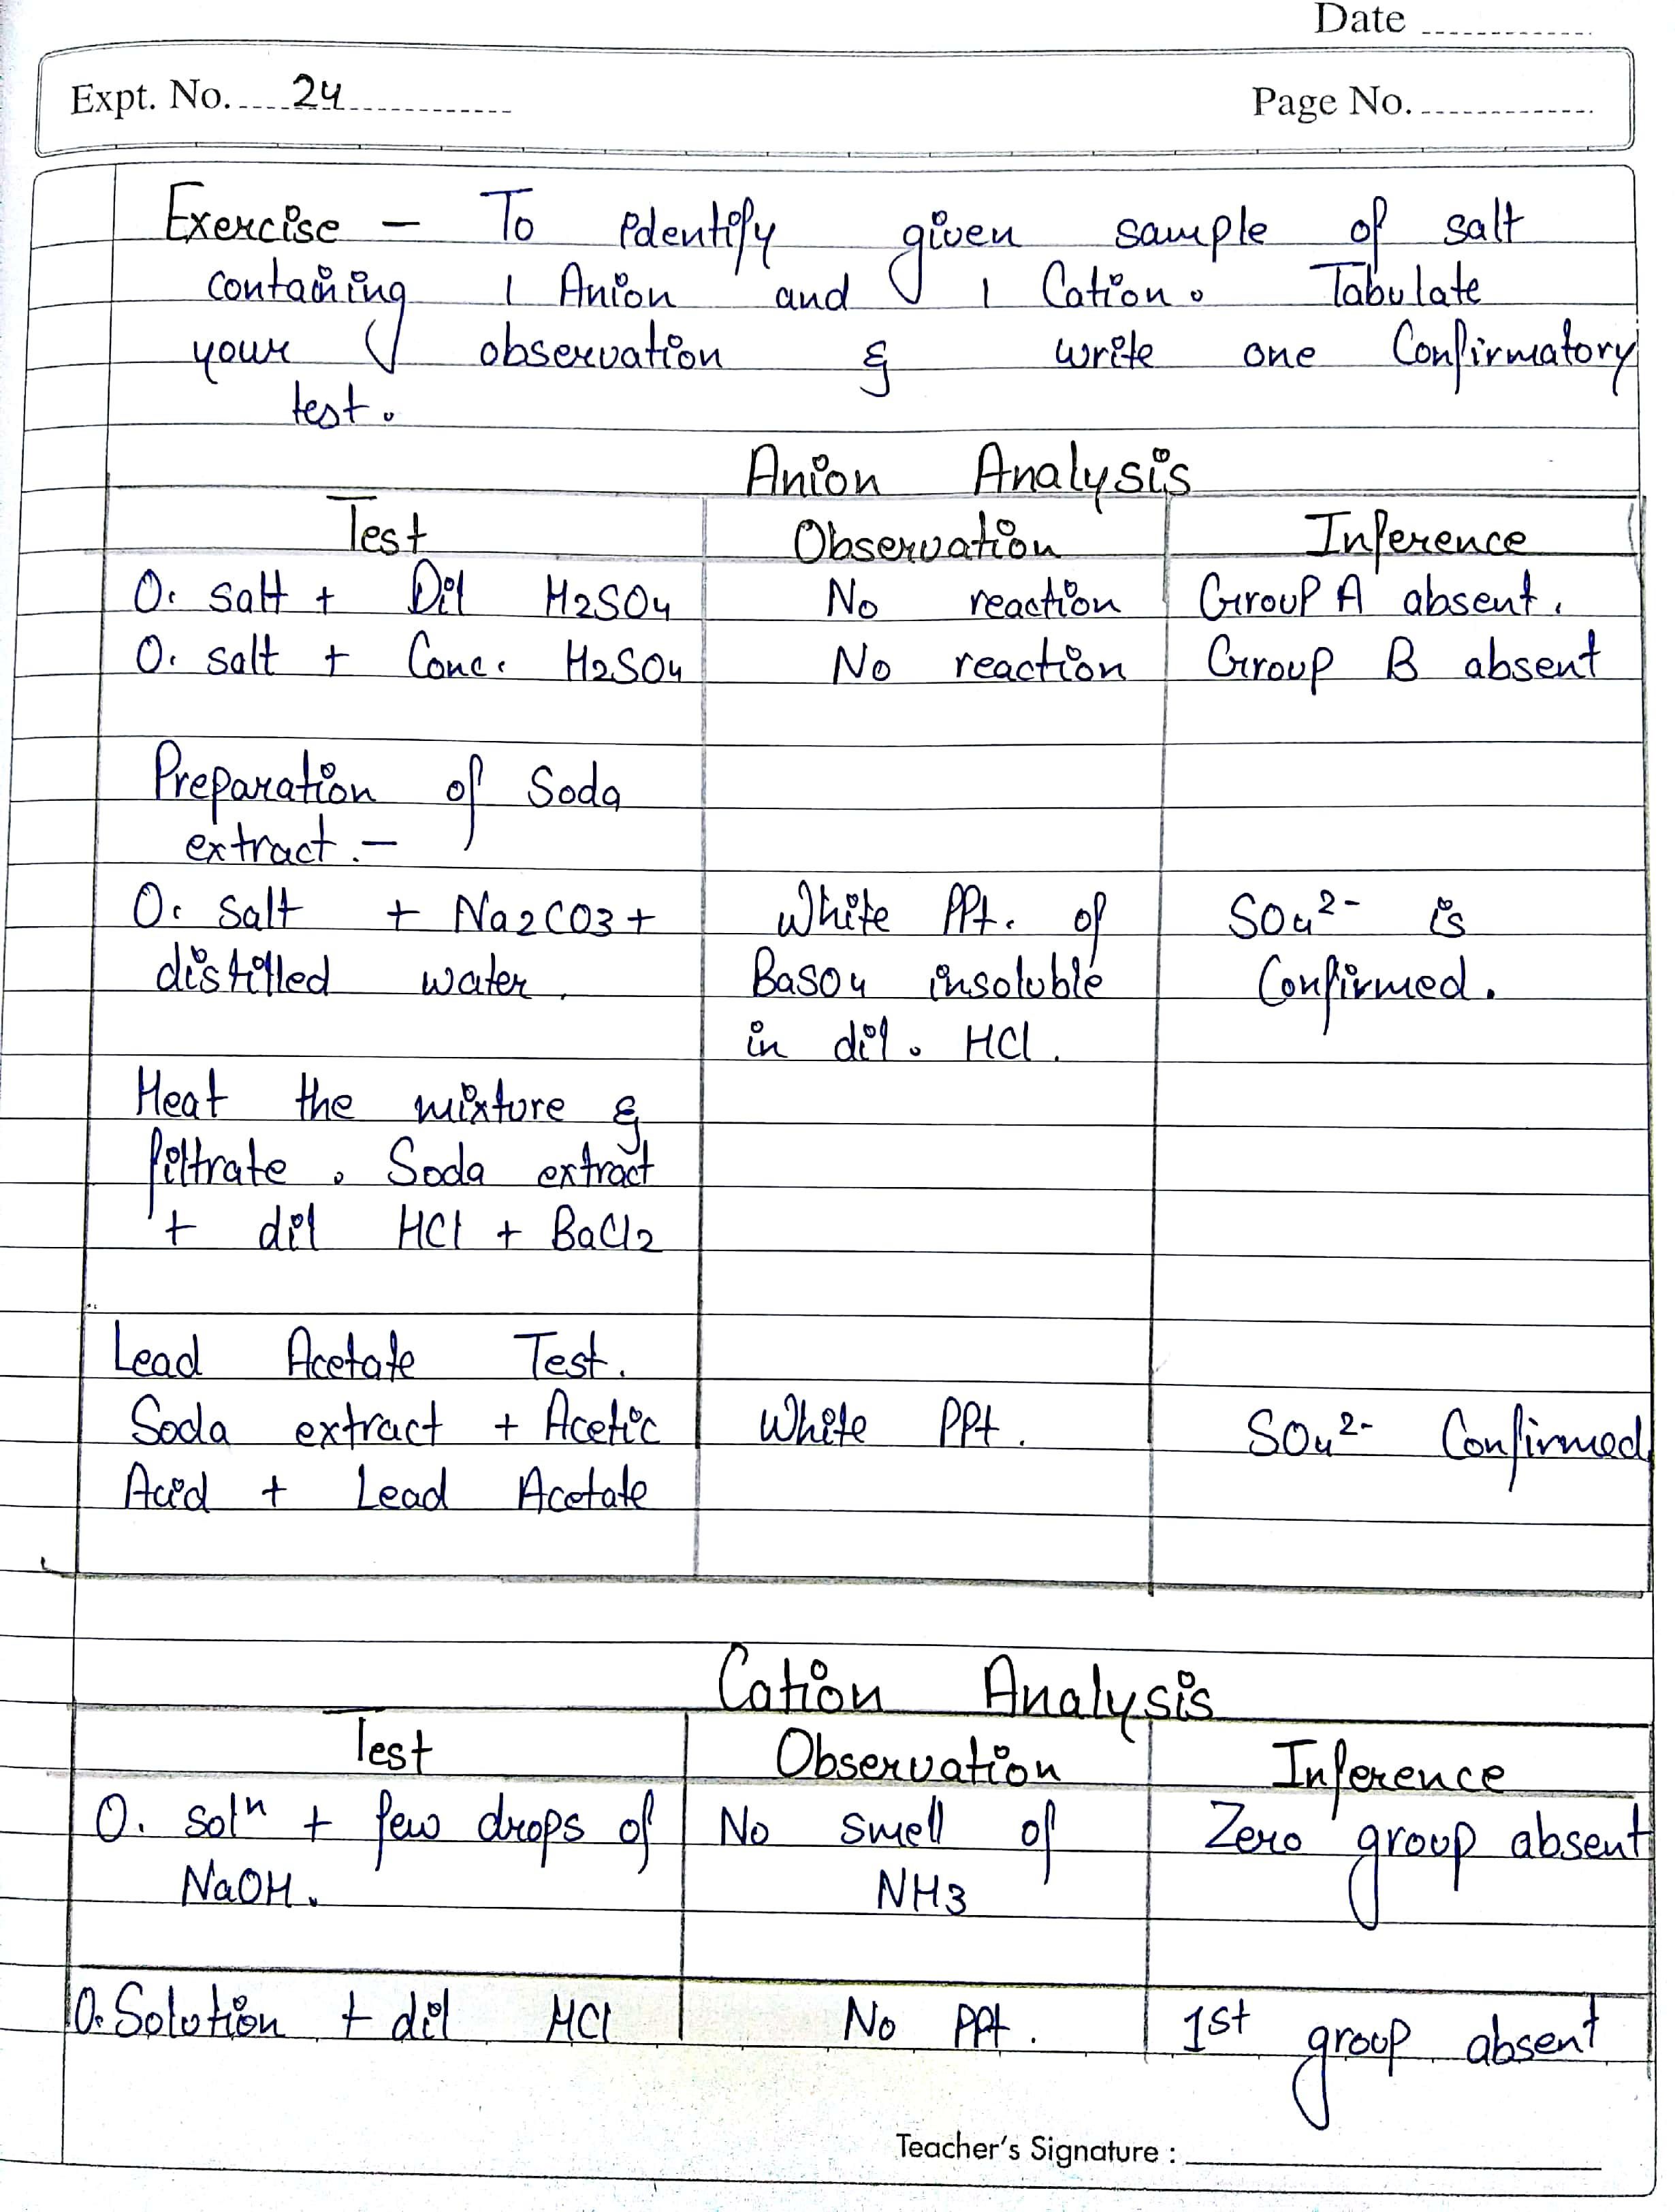 Date
Expt. No. 24
Page No.
Exercise - To identify given sample of salt
containing 1 Anion and 1 Cation. Tabulate
your observation & write one Confirmatory
test.
Anion Analysis
Test Observation Inference
O. salt + Dil H2SO4 No reaction Group A absent.
O. salt + Conc. H2SO4 No reaction Group B absent
Preparation of Soda
extract.-
O. salt + Na2CO3 + White PPt. of SO4 2- is
distilled water. BaSO4 insoluble Confirmed.
in dil. HCl.
Heat the mixture &
filtrate. Soda extract
+ dil HCl + BaCl2
Lead Acetate Test.
Soda extract + Acetic White PPt. SO4 2- Confirmed
Acid + Lead Acetate
Cation Analysis
Test Observation Inference
O. solⁿ + few drops of No smell of Zero group absent
NaOH. NH3
O. Solution + dil HCl No PPt. 1st group absent
Teacher's Signature :